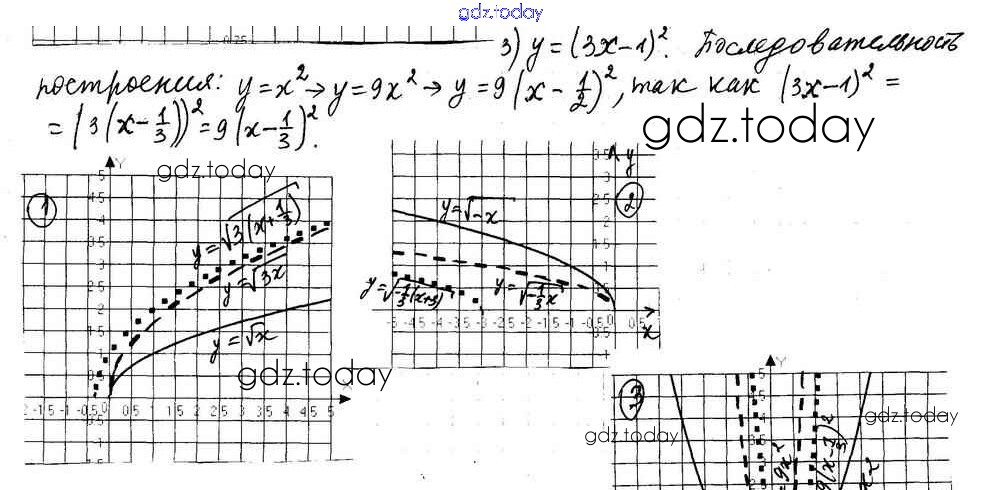 gdz.today
3) y = (3x-1)². Последовательность
построения: y = x² → y = 9x² → y = 9(x - 1/2)², так как (3x-1)² =
= (3(x - 1/3))² = 9(x - 1/3)².
gdz.today
gdz.today
1
y
y = √3(x + 1/3)
y = √3x
y = √x
gdz.today
2 -1.5 -1 -0.5 0 0.5 1 1.5 2 2.5 3 3.5 4 4.5 5 x
2
y
y = √-x
y = √-1/3(x+3)
y = √-1/3x
-5 -4.5 -4 -3.5 -3 -2.5 -2 -1.5 -1 -0.5 0 0.5
x
3
y
gdz.today
gdz.today
9x²
9(x - 1/3)²
x²